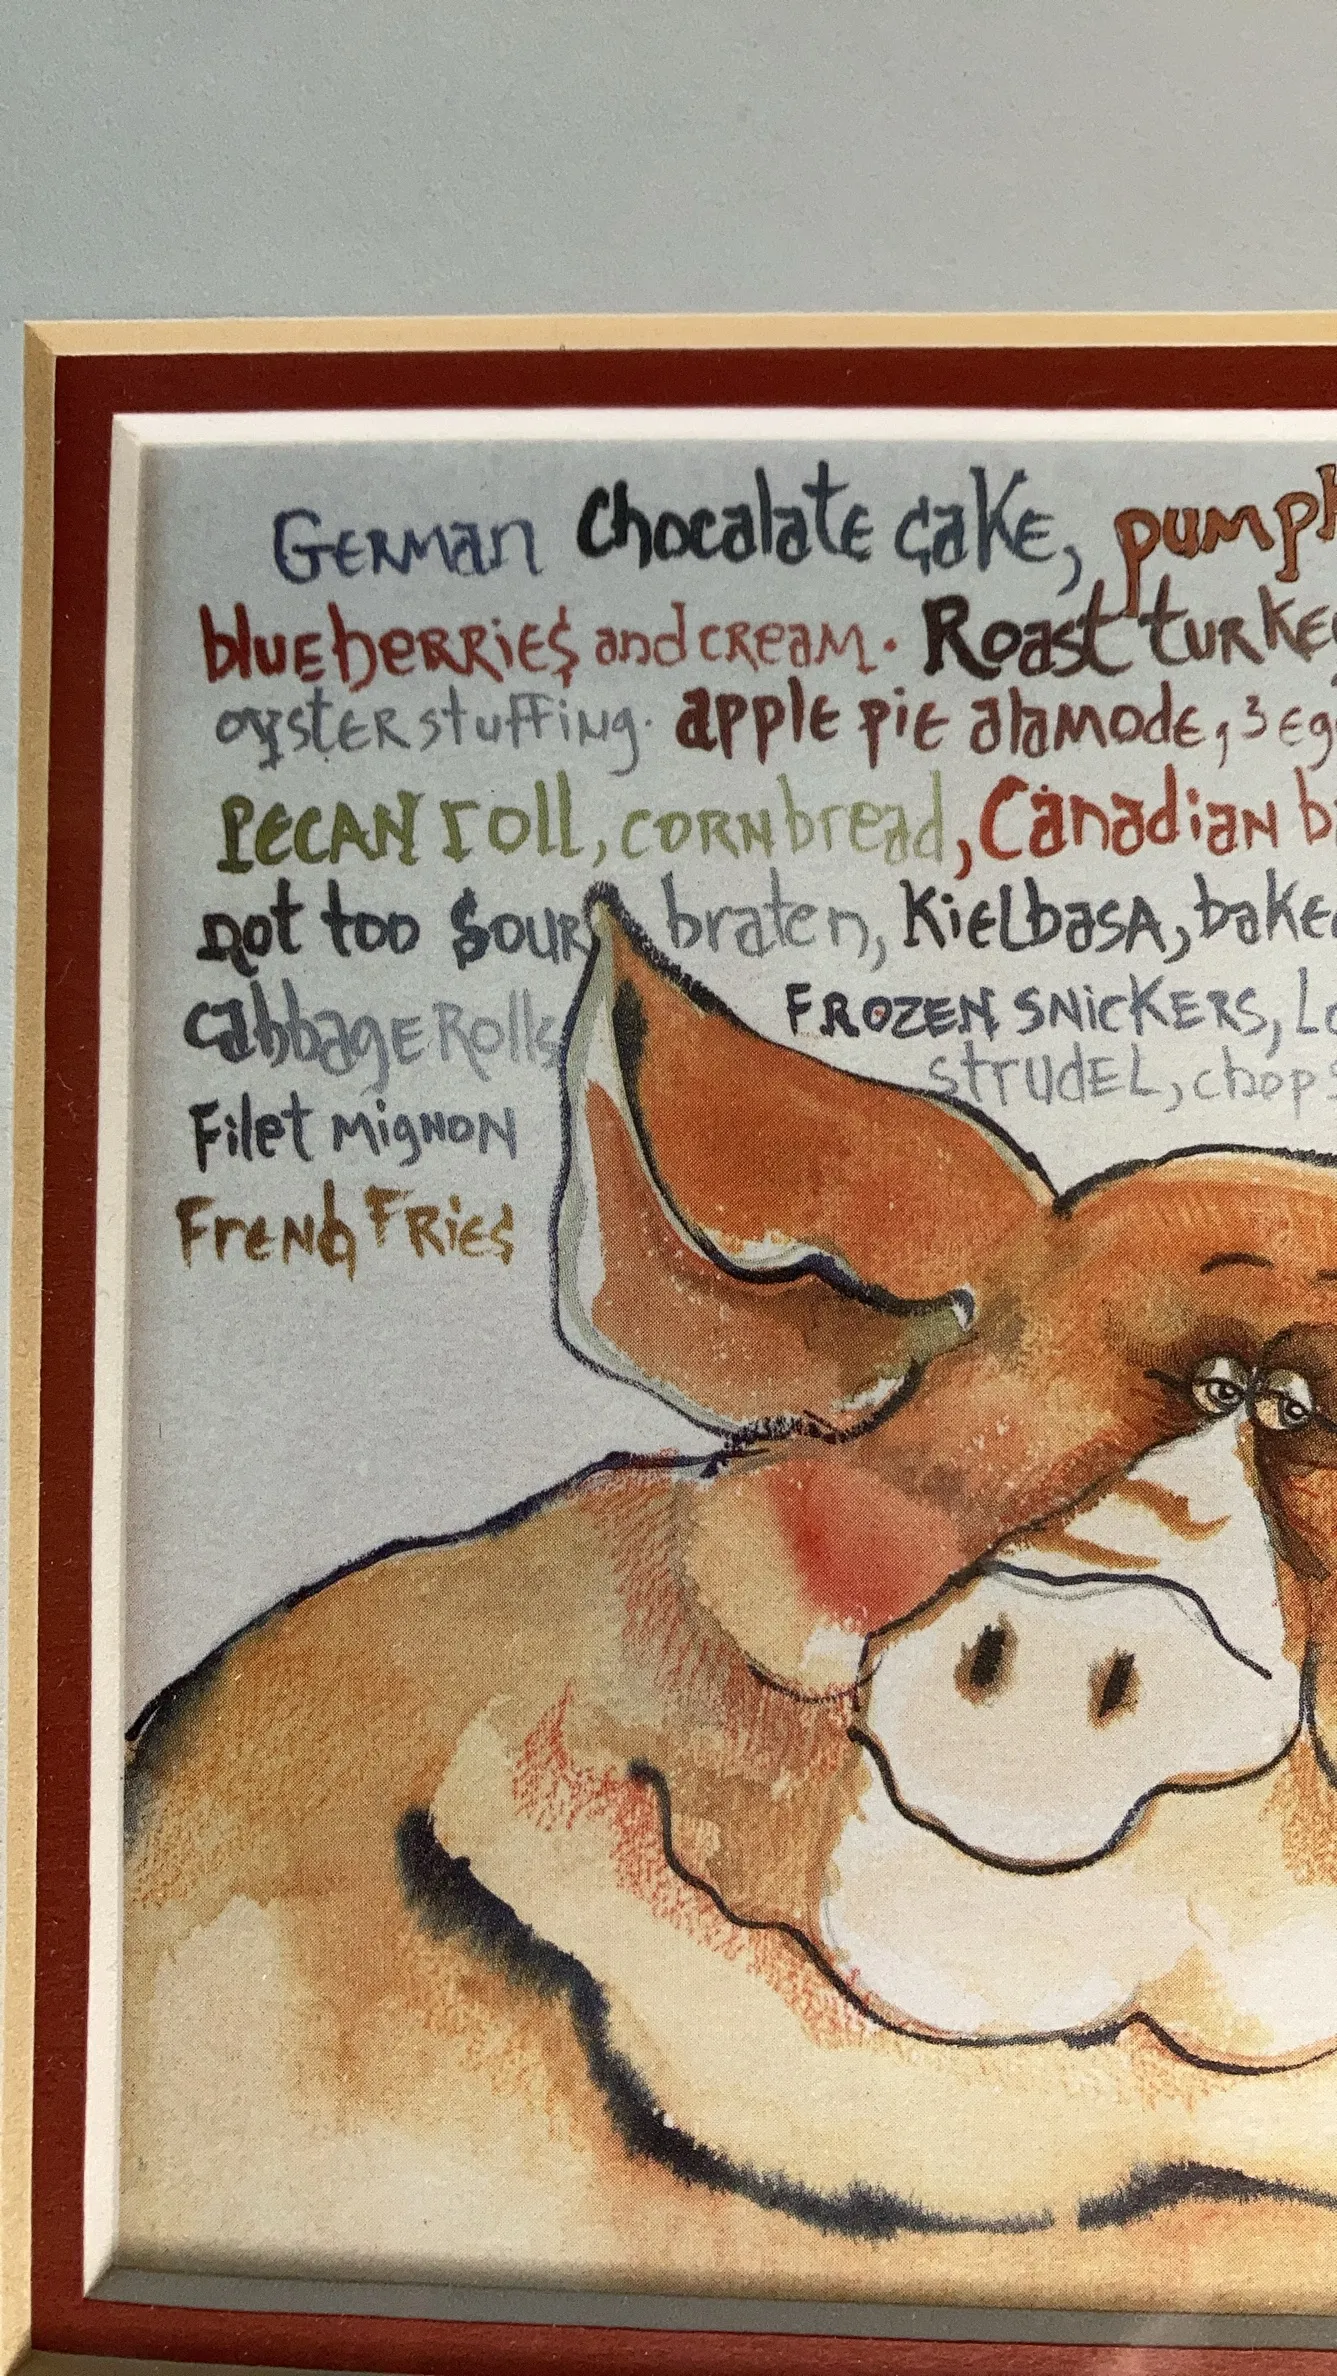 German Chocalate cake, pumpk
blueberries and cream. Roast turke
oyster stuffing. apple pie alamode, 3 eg
Pecan roll, cornbread, Canadian b
not too sour braten, Kielbasa, bake
cabbage Rolls Frozen Snickers, Lo
strudel, chops
Filet mignon
Frenh Fries